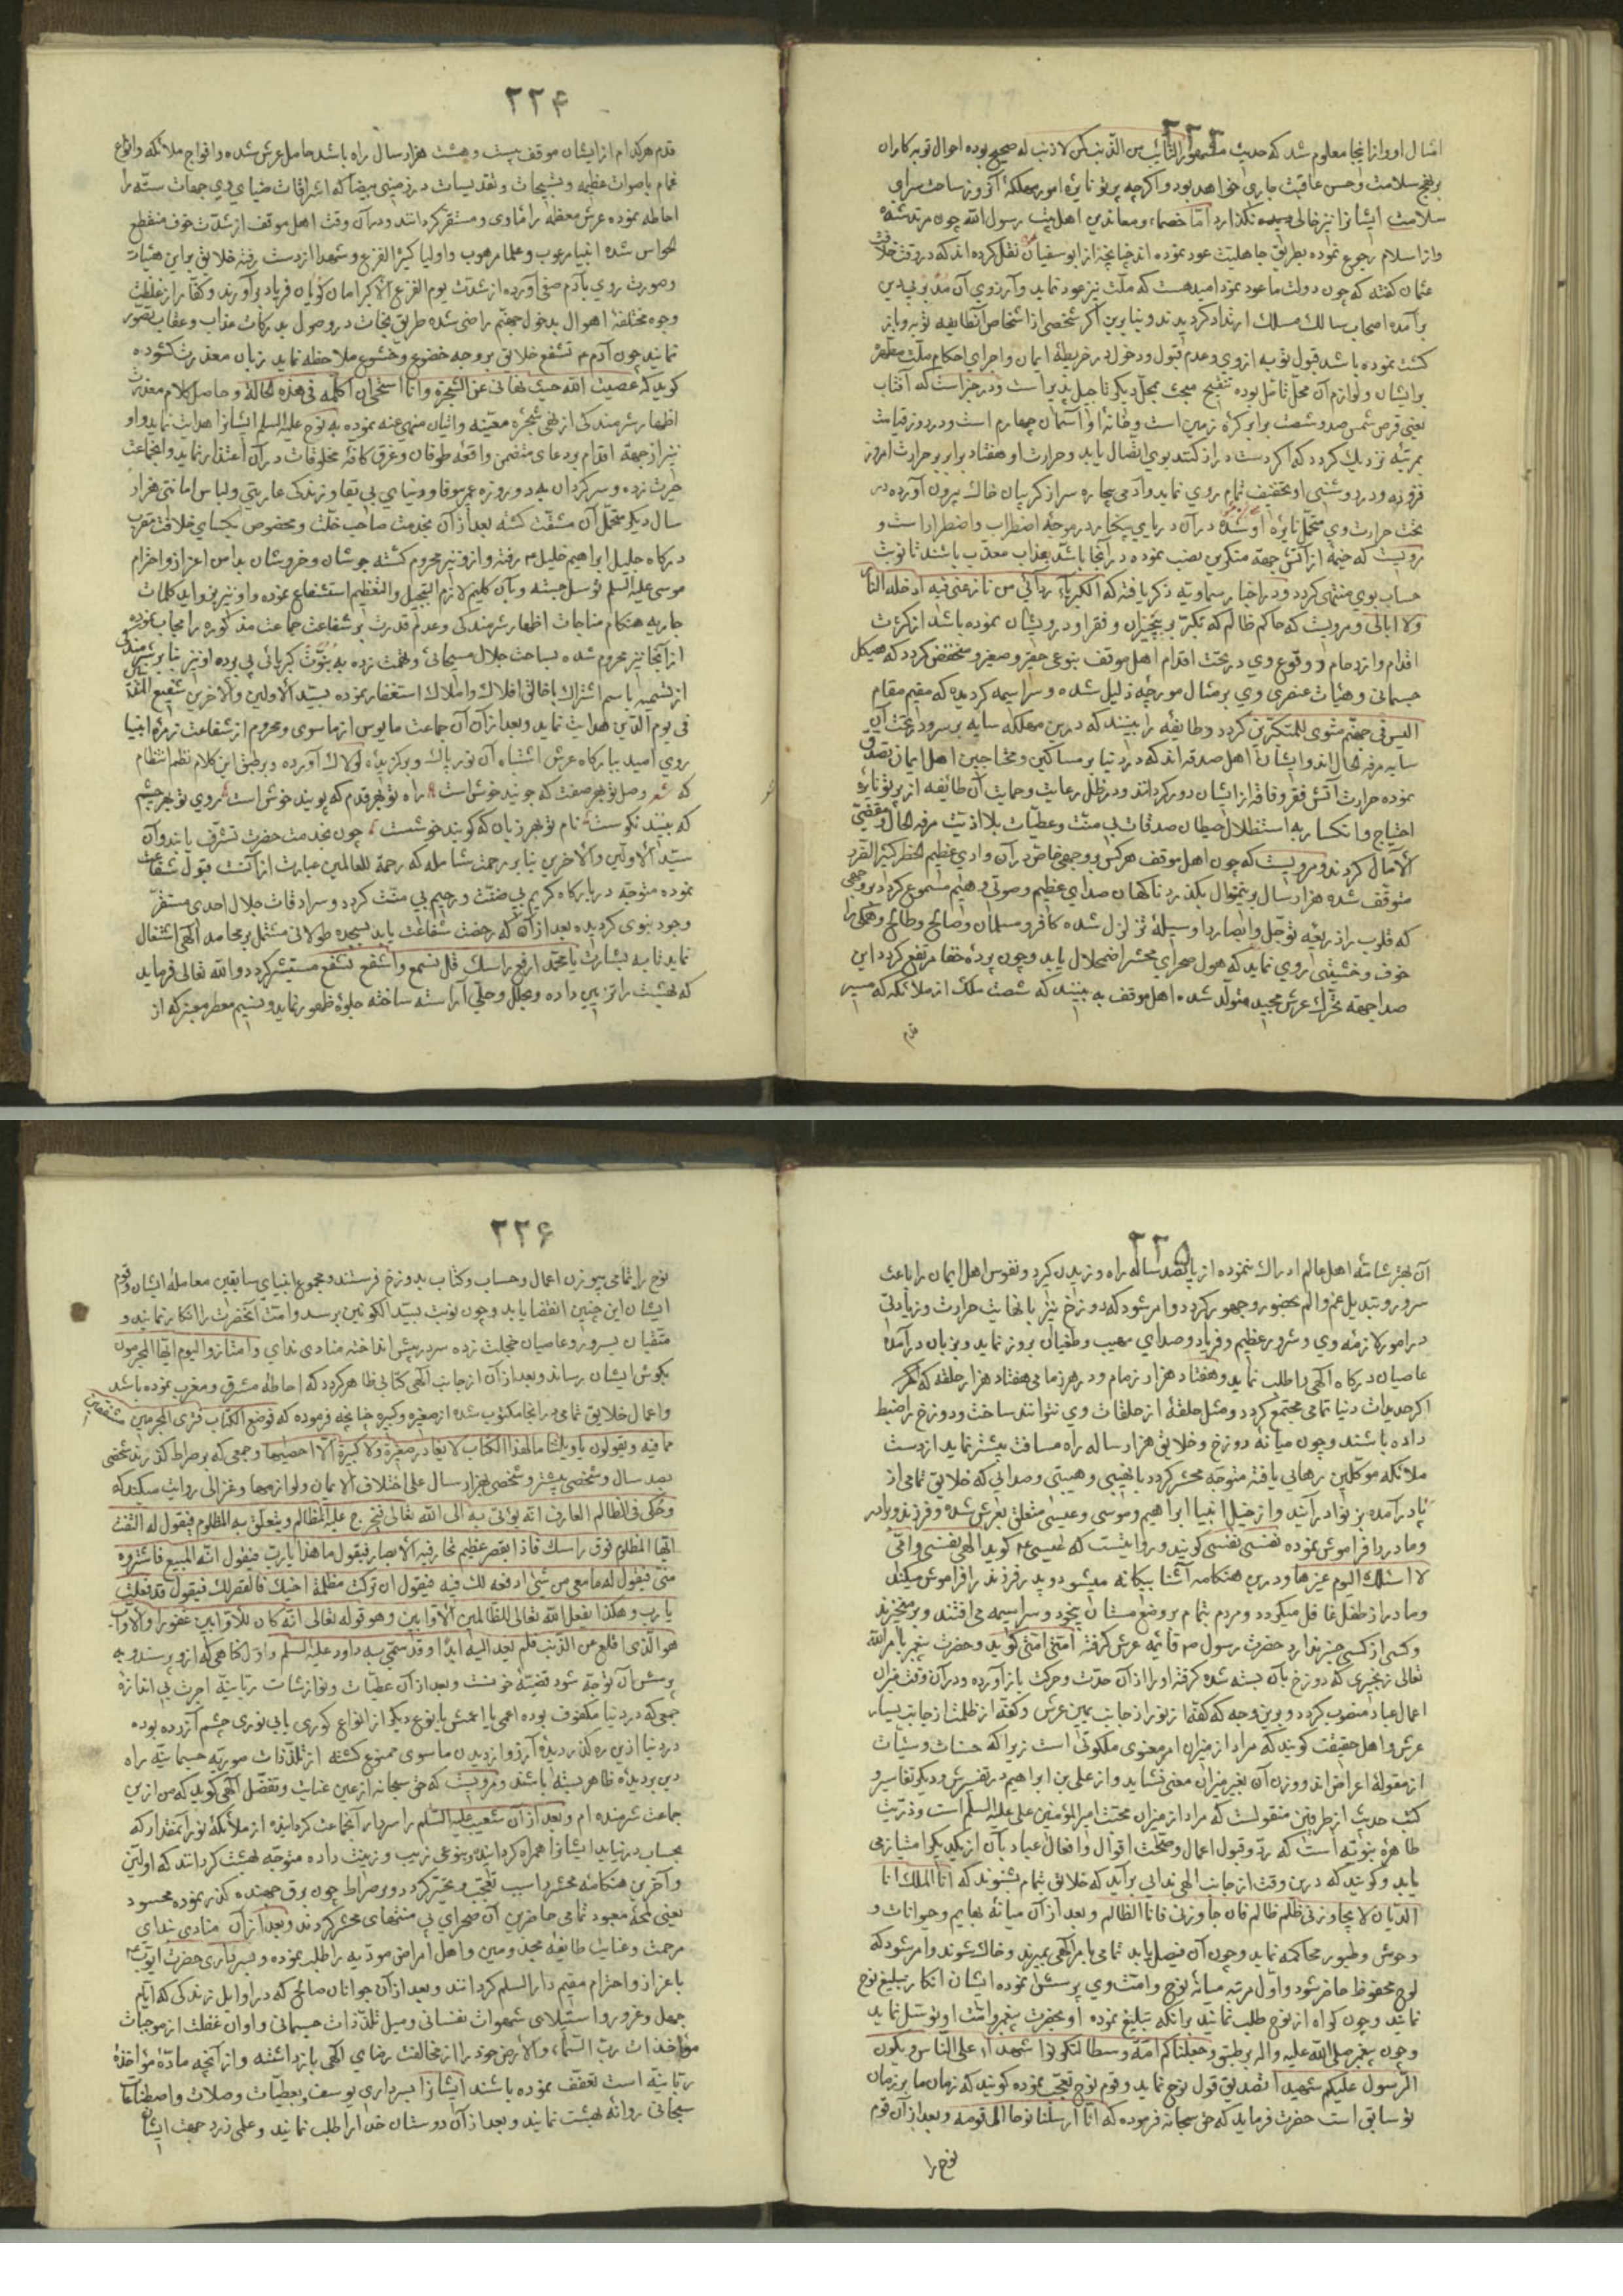 ۲۲۳
امثال او و از اینجا معلوم شد که حدیث مشهور التائب من الذنب کمن لا ذنب له صحیح بوده احوال توبه کاران
بر نهج سلامت و حسن عاقبت جاری خواهد بود و اگرچه پرتو نایره امور مهلکه آنروز ساحت سرای
سلامت ایشانرا نیز خالی نگذارد اما خصماء و معاندین اهل بیت رسول الله چون مرتد شده
و از اسلام رجوع نموده بطریق جاهلیت عود نموده اند چنانچه از ابوسفیان نقل کرده اند که در وقت خلافت
عثمان گفته که چون دولت ما عود نمود امید هست که ملت نیز عود نماید و آرزوی آن
برآمده اصحاب سالک مسلک ارتداد گردیدند و بنا برین اگر شخصی از اشخاص آنطایفه توبه و باز
گشت نموده باشد قبول توبه از وی و عدم قبول و دخول در خریطهٔ ایمان و اجرای احکام ملت مطهر
بر ایشان و لوازم آن محل تامل بوده تنقیح مبحث بمحل دیگر تاجیل پذیر است و در خبر است که آفتاب
یعنی قرص شمس صد و شصت برابر کرهٔ زمین است و خانهٔ او آسمان چهارم است و در روز قیامت
بمرتبه نزدیک گردد که اگر دست دراز کنند بوی اتصال یابد و حرارت او هفتاد برابر حرارت امروز
تحت حرارت وی متحمل نایره او شده در آن دریای
مرویست که خیمهٔ از آتش جهة متکبرین نصب نموده در آنجا باشد بعذاب معذب باشند تا نوبت
حساب بوی منتهی گردد و در اخبار سماویه ذکر یافته که الکبریاء ردائی من نازعنی فیه ادخله النار
ولا ابالی و مرویست که حاکم ظالم که تکبر بر بیچیزان و فقرا و درویشان نموده باشد از کثرت
اقدام و ازدحام و وقوع وی در تحت اقدام اهل موقف بنوعی حقیر و صغیر و منخفض گردد که هیکل
جسمانی و هیئات عنصری وی بر مثال مورچهٔ ذلیل شده و سراسیمه گردیده که مقیم مقام
الیس فی جهنم مثوی للمتکبرین گردد و طایفهٔ را بینند که درین مهلکه سایه بر سر و در تحت آن
سایه مرفه الحال اند و ایشان اهل صدقه اند که در دنیا بر مساکین و محتاجین اهل ایمان تصدق
نموده حرارت آتش فقر و فاقه از ایشان دور کرده اند و در ظل رعایت و حمایت آن طائیفه از پرتو نایره
احتیاج و انکسار به استظلال صدقات بی منت و عطیات بلا اذیت مرفه الحال و مقضی
الآمال گردند و مرویست که چون اهل موقف هر کس بوجهی خاص در آن وادی عظیم الخطر کثیر الضرر
متوقف شده هزار سال برینمنوال بگذرد ناگهان صدای عظیم و صوتی وهیم مسموع گردد بر وجهی
که قلوب را ذریعه توجل و ابصار را وسیلهٔ تزلزل شده کافر و مسلمان و صالح و طالح و همگی را
خوف و خشیتی روی نماید که هول صحرای محشر اضمحلال یابد و چون پرده خفا مرتفع گردد این
صدا جهة تحرک عرش مجید متولد شده اهل موقف به بینند که شصت ملک از ملائکه که مسیر
قدم
۲۲۴
قدم هر کدام از ایشان موقف بیست و هشت هزار سال راه باشد حامل عرش شده و افواج ملائکه و انواع
غمام باصوات عظیمه و تسبیحات و تقدیسات در زمینی بیضا که اشراقات ضیای وی جهات سته را
احاطه نموده عرش معظم را ماوی و مستقر گردانند و در آن وقت اهل موقف از شدت خوف منقطع
الحواس شده انبیا مرعوب و علما مرهوب و اولیا کثیر الفزع و شهدا از دست رفته خلائق بر این هیئات
و صورت روی بآدم صفی آورده از شدت یوم الفزع الاکبر امان گویان فریاد برآورند و کفار از غلظت
وجوه مختلفهٔ اهوال بدخول جهنم راضی شده طریق نجات در وصول بدرکات عذاب و عقاب تصور
نمایند چون آدم ع تشفع خلائق بر وجه خضوع و خشوع ملاحظه نماید زبان معذرت گشوده
گوید که عصیت الله حیث نهانی عن الشجرة و انا استحیی ان اکلمه فی هذه الحالة و حاصل کلام معذرت
اظهار شرمندگی از نهی شجرهٔ معینه و اتیان منهی عنه نموده به نوح علیه السلم ایشانرا هدایت نماید و او
نیز از جهة اقدام بر دعای متضمن واقعهٔ طوفان و غرق کافهٔ مخلوقات در آن اعتذار نماید و انجماعت
حیرت زده و سرگردان به دو روزه عمر بیوفا و دنیای بی بقا و زندگی عاریتی و لباس امانتی هزار
سال دیگر متحمل آن مشقت گشته بعد از آن بخدمت صاحب خلت و مخصوص بکسای خلافت مقرب
درگاه جلیل ابراهیم خلیل ع رفته و ازو نیز محروم گشته جوشان و خروشان بدامن اعزاز و احترام
موسی علیه السلم توسل جسته و بآن کلیم لازم التبجیل و التعظیم استشفاع نموده و او نیز بزواید کلمات
جاریه هنگام مناجات اظهار شرمندگی و عدم قدرت بر شفاعت جماعت مذکوره را مجاب نموده
از آنجا نیز محروم شده بساحت جلال مسیحائی و تهمت زده به بنوت کبریائی پی برده او نیز بنا بر شرمندگی
از تسمیه باسم اشتراک با خالق افلاک و املاک استغفار نموده بسید الاولین و الآخرین شفیع الامة
فی یوم الدین هدایت نماید و بعد از آن آن جماعت مایوس از ماسوی و محروم از شفاعت زمرهٔ انبیا
روی امید ببارگاه عرش اشتباه آن نور پاک و برگزیدهٔ لولاک آورده و بر طبق این کلام نظم انتظام
که شعر وصل تو بهر صفت که جویند خوش است راه تو بهر قدم که پویند خوش است روی تو بهر چشم
که بینند نکوست نام تو بهر زبان که گویند خوشست چون بخدمت حضرت تشرف یابند و آن
سید الاولین و الآخرین بنا بر رحمت شامله که رحمة للعالمین عبارت از آنست قبول شفاعت
نموده متوجه دربارگاه کریم بی ضنت و رحیم بی منت گردد و سرادقات جلال احدی مستقر
وجود نبوی گردیده بعد از آن که رخصت شفاعت یابد بسجده طولانی مشتمل بر محامد الهی اشتغال
نماید تا به بشارت یا محمد ارفع راسک قل تسمع و اشفع تشفع مستبشر گردد و الله تعالی فرماید
که بهشت را تزیین داده و بحلل و حلی آراسته ساخته جلوهٔ ظهور نماید و نسیم معطر معنبر که از
۲۲۵
آن بهر شامهٔ اهل عالم ادراک ننموده از پانصد ساله راه وزیدن گیرد و نفوس اهل ایمان را باعث
سرور و تبدیل غم و الم بحضور و حبور گردد و امر شود که دوزخ نیز با نهایت حرارت و زیادتی
در امور لازمه وی و شرور عظیم و فریاد و صدای مهیب و طغیان بروز نماید و بزبان درآمده
عاصیان درگاه الهی را طلب نماید و هفتاد هزار زمام و در هر زمامی هفتاد هزار حلقه که اگر
اگر حدیدات دنیا تمامی مجتمع گردد و مثل حلقهٔ از حلقات وی نتوانند ساخت و دوزخ را ضبط
داده باشند و چون میانهٔ دوزخ و خلایق هزار ساله راه مسافت بیشتر نماید از دست
ملائکه موکلین رهایی یافته متوجه محشر گردد با نهیبی و هیبتی و صدائی که خلایق تمامی از
پا درآمده بزانو درآیند و از خیل انبیا ابراهیم و موسی و عیسی متعلق بعرش شده و فرزند و برادر
و مادر را فراموش نموده نفسی نفسی گویند و روایتست که عیسی ع گوید الهی نفسی و امی
لا اسئلک الیوم غیرها و درین هنگامه آشنا بیگانه میشود و پدر فرزند را فراموش میکند
و مادر از طفل غافل میگردد و مردم تمام بر وضع مستان بیخود و سراسیمه می افتند و برمیخیزند
و کسی از کسی خبر ندارد حضرت رسول ص قائمه عرش گرفته امتی امتی گوید و حضرت پیغمبر بامر الله
تعالی زنجیری که دوزخ بآن بسته شده گرفته او را از آن حدت و حرکت باز آورده و در آن وقت میزان
اعمال عباد منصوب گردد و برین وجه که کفهٔ از نور از جانب یمین عرش و کفهٔ از ظلمت از جانب یسار
عرش و اهل حقیقت گویند که مراد از میزان امر معنوی ملکوتی است زیرا که حسنات و سیئات
از مقولهٔ اعراض اند و وزن آن بغیر میزان معنی نشاید و از علی بن ابراهیم در تفسیرش و دیگر تفاسیر و
کتب حدیث از طرفین منقولست که مراد از میزان محبت امیر المؤمنین علی علیه السلم است و ذریت
طاهرهٔ نبویه است که رد و قبول اعمال و صحت اقوال و افعال عباد بآن از یکدیگر امتیاز می
یابد و گویند که درین وقت از جانب الهی ندایی برآید که خلائق تمام بشنوند که انا الملک انا
الدیان لا یجاوزنی ظلم ظالم فان جاوزنی فانا الظالم و بعد از آن میانهٔ بهایم و حیوانات و
وحوش و طیور محاکمه نماید و چون آن فیصل یابد تمامی بامر الهی بمیرند و خاک شوند و امر شود که
لوح محفوظ حاضر شود و اول مرتبه میانهٔ نوح و امت وی پرسش نموده ایشان انکار تبلیغ نوح
نمایند و چون گواه از نوح طلب نمایند بر آنکه تبلیغ نموده او بحضرت پیغمبر و امت او توسل نماید
و چون پیغمبر صلی الله علیه و آله بر طبق و جعلناکم امة وسطا لتکونوا شهداء علی الناس و یکون
الرسول علیکم شهیدا تصدیق قول نوح نماید و قوم نوح تعجب نموده گویند که زمان ما بر زمان
تو سابق است حضرت فرماید که حق سبحانه فرموده که انا ارسلنا نوحا الی قومه و بعد از آن قوم
نوح را
۲۲۶
نوح را تمامی بیوزن اعمال و حساب و کتاب بدوزخ فرستند و مجموع انبیای سابقین معامله ایشان و قوم
ایشان این چنین انقضا یابد و چون نوبت بسید الکونین برسد و امت آنحضرت را انکار نمایند و
متقیان بسرور و عاصیان خجلت زده سر در پیش انداخته منادی ندای و امتازوا الیوم ایها المجرمون
بگوش ایشان رساند و بعد از آن از جانب الهی کتابی ظاهر گردد که احاطه مشرق و مغرب نموده باشد
و اعمال خلایق تمامی در آنجا مکتوب شده از صغیره و کبیره چنانچه فرموده که فوضع الکتاب فتری المجرمین مشفقین
مما فیه و یقولون یا ویلتنا ما لهذا الکتاب لا یغادر صغیرة ولا کبیرة الا احصیها و جمعی که بر صراط گذرند شخصی
بصد سال و شخصی بیشتر و شخصی بهزار سال علی اختلاف الایمان و لوازمها و غزالی روایت میکند که
و حکی فی الظالم العارف انه یؤتی به الی الله تعالی فیخرج علیه المظالم و یتعلق به المظلوم فیقول له التفت
ایها المظلوم فوق راسک فاذا بقصر عظیم تحار فیه الابصار فیقول ما هذا یا رب فیقول انه للمبیع فاشتروه
منی فیقول له ما معی من شئ ادفعه لک فیه فیقول ان ترکت مظلمة اخیک فالقصر لک فیقول قد فعلت
یا رب و هکذا یفعل الله تعالی للظالمین الاوابین و هو قوله تعالی انه کان للاوابین غفورا و الاواب
هو الذی اقلع عن الذنب فلم یعد الیه ابدا و قد سمی به داود علیه السلم و اول گناهی که ازو پرسند و به
پرسش آن توجه شود قضیهٔ خونست و بعد از آن عطیات و نوازشات ربانیه اجرت بی اندازه
جمعی که در دنیا مکفوف بوده اعمی یا اعمش یا نوع دیگر از انواع کوری یا بی نوری چشم آزرده بوده
در دنیا ازین رهگذر دیدهٔ آرزو از دیدن ماسوی ممنوع گشته از تلذذات صوریه جسمانیه راه
دید بر دیدهٔ ظاهر بسته باشند و مرویست که حق سبحانه از عین عنایت و تفضل الهی گوید که من ازین
جماعت شرمنده ام و بعد از آن شعیب علیه السلم را سردار آنجماعت گردانیده از ملائکهٔ نور آنمقدار که
بحساب درنیاید ایشانرا همراه گردانیده و بنوعی زیب و زینت داده متوجه بهشت گردانند که اولین
و آخرین هنگامهٔ محشر را سبب تعجب و تحیر گردد و بر صراط چون برق جهنده گذر نموده محسود
یعنی غبطهٔ معبود تمامی حاضرین آن صحرای بی منتهای محشر گردند و بعد از آن منادی ندای
مرحمت و عنایت طایفهٔ مجذومین و اهل امراض مودیه را طلب نموده و بسرداری حضرت ایوب ع
باعزاز و احترام مقیم دار السلم گردانند و بعد از آن جوانان صالح که در اوایل زندگی که ایام
جهل و غرور و استیلای شهوات نفسانی و میل تلذذات جسمانی و اوان غفلت از موجبات
مؤاخذات رب السماء و الارض خود را از مخالفت رضای الهی بازداشته و از آنچه مادهٔ مؤاخذهٔ
ربانیه است تعفف نموده باشند ایشانرا بسرداری یوسف بعطیات و صلات و اصطناعات
سبحانی روانهٔ بهشت نمایند و بعد از آن دوستان خدا را طلب نمایند و علی ذرد جهت ایشان